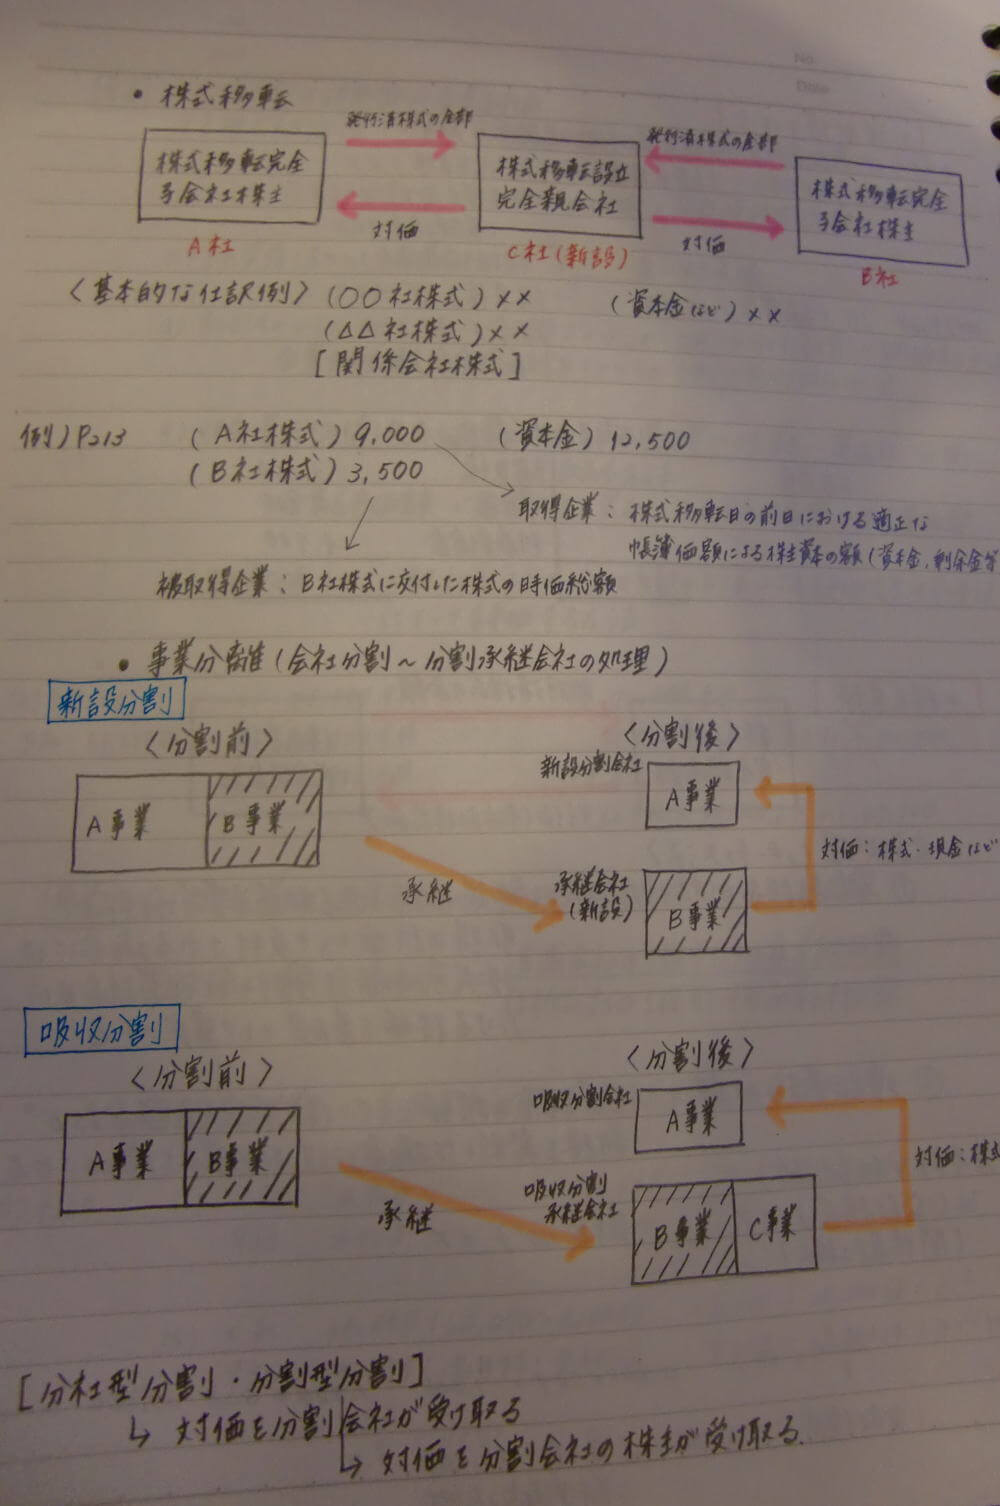 No.
Date
• 株式移転
発行済株式の全部
発行済株式の全部
株式移転完全
子会社株主
株式移転設立
完全親会社
株式移転完全
子会社株主
対価
対価
A社
C社(新設)
B社
〈基本的な仕訳例〉(〇〇社株式)×× (資本金など)××
(△△社株式)××
[関係会社株式]
例)P213 (A社株式)9,000 (資本金)12,500
(B社株式)3,500
取得企業:株式移転日の前日における適正な
帳簿価額による株主資本の額(資本金,剰余金等
被取得企業:B社株式に交付した株式の時価総額
• 事業分離(会社分割~分割承継会社の処理)
新設分割
〈分割前〉
〈分割後〉
新設分割会社
A事業
A事業 B事業
対価:株式・現金など
承継
承継会社
(新設)
B事業
吸収分割
〈分割前〉
〈分割後〉
吸収分割会社
A事業
A事業 B事業
対価:株式
承継
吸収分割
承継会社
B事業 C事業
[分社型分割・分割型分割]
↳ 対価を分割会社が受け取る
↳ 対価を分割会社の株主が受け取る.